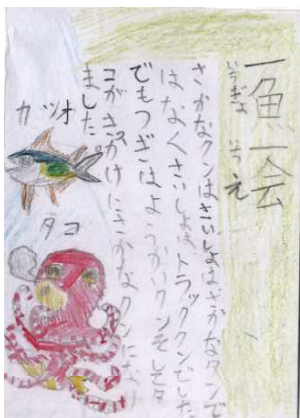 一魚一会
いちぎょ いちえ
さかなクンはさいしょはさかなクンで
はなくさいしょはトラッククンでした
でもつぎはようかいクンそしてタ
コがきっかけにさかなクンになり
ました。
カツオ
タコ